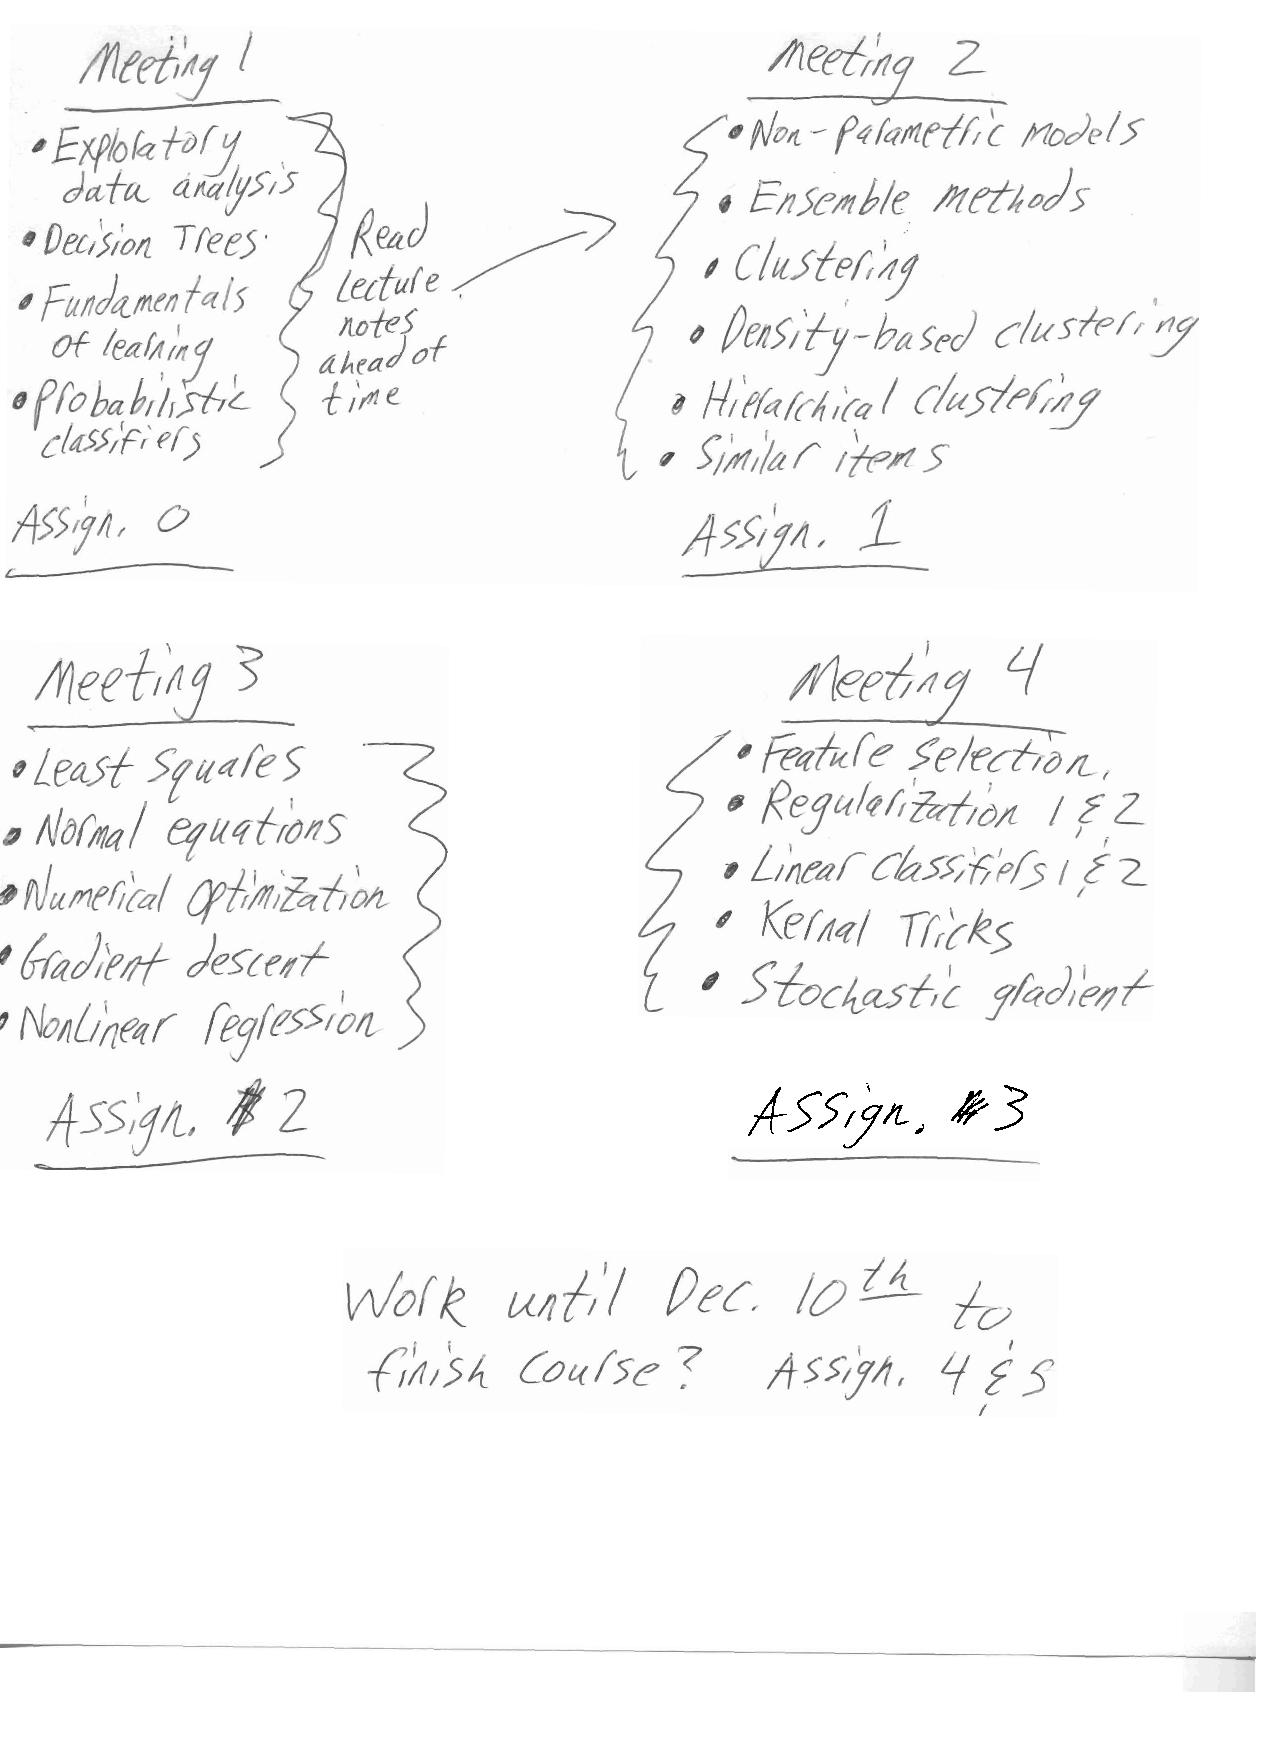 Meeting 1
• Exploratory
data analysis
• Decision Trees
• Fundamentals
of learning
• Probabilistic
classifiers
Read
Lecture
notes
ahead of
time
Assign. 0
Meeting 2
• Non-Parametric models
• Ensemble methods
• Clustering
• Density-based clustering
• Hierarchical clustering
• Similar items
Assign. 1
Meeting 3
• Least Squares
• Normal equations
• Numerical Optimization
• Gradient descent
• NonLinear regression
Assign. 2
Meeting 4
• Feature Selection,
• Regularization 1 & 2
• Linear Classifiers 1 & 2
• Kernal Tricks
• Stochastic gradient
Assign. 3
Work until Dec. 10th to
finish course? Assign. 4 & 5